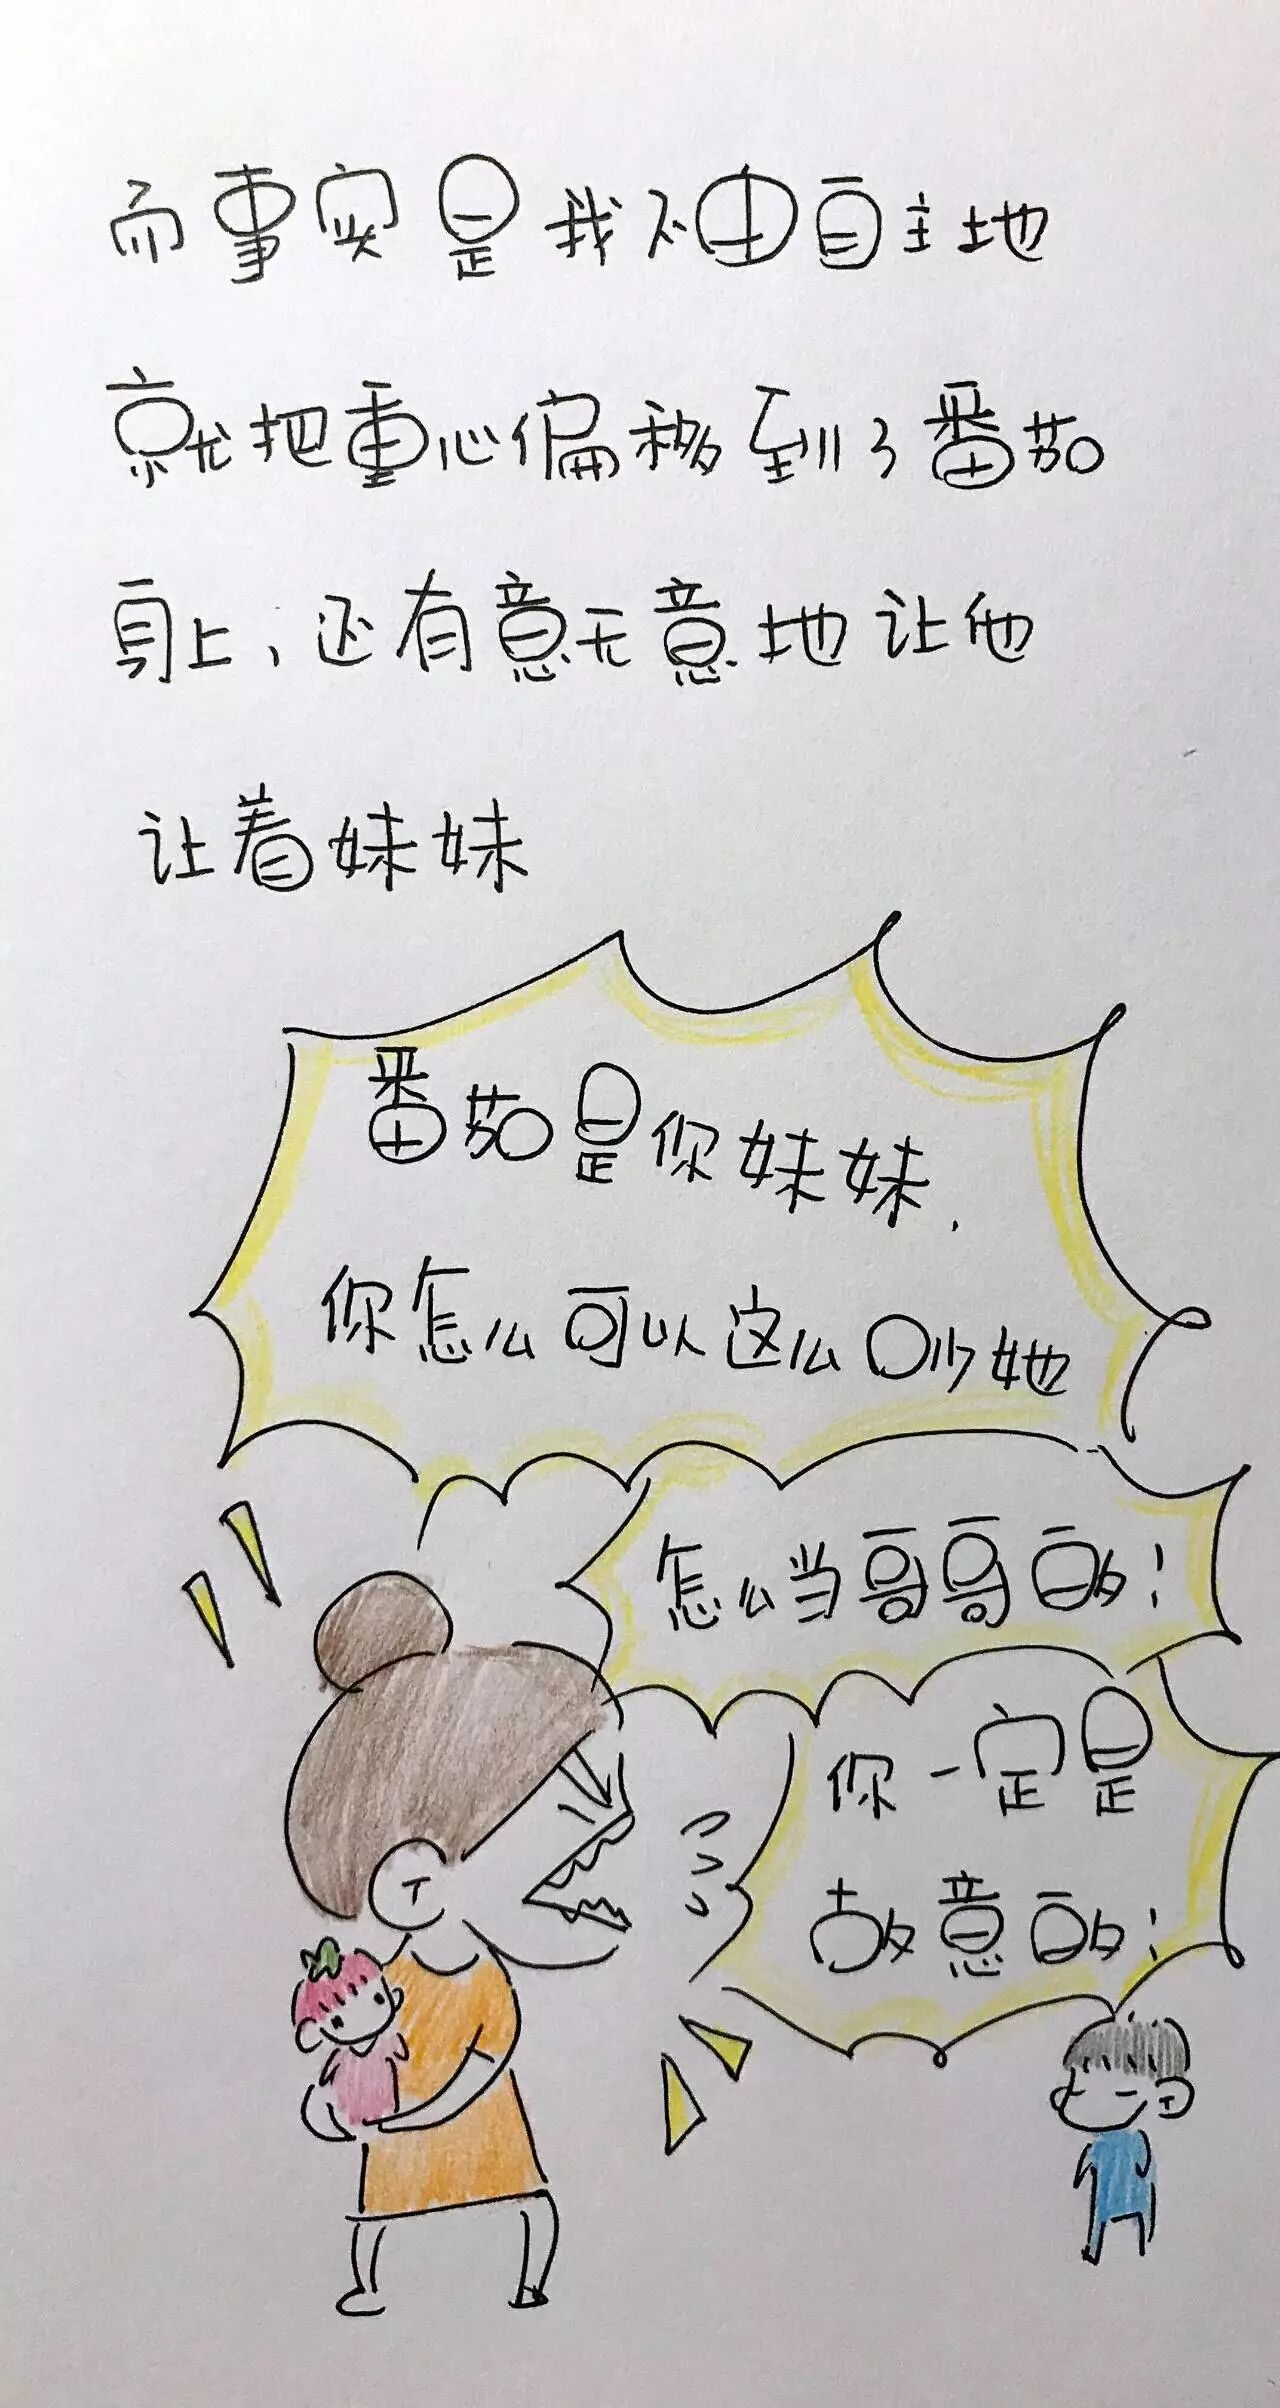 而事实是我不由自主地
就把重心偏移到了番茄
身上、还有意无意地让他
让着妹妹
番茄是你妹妹、
你怎么可以这么吵她
怎么当哥哥的！
你一定是
故意的！